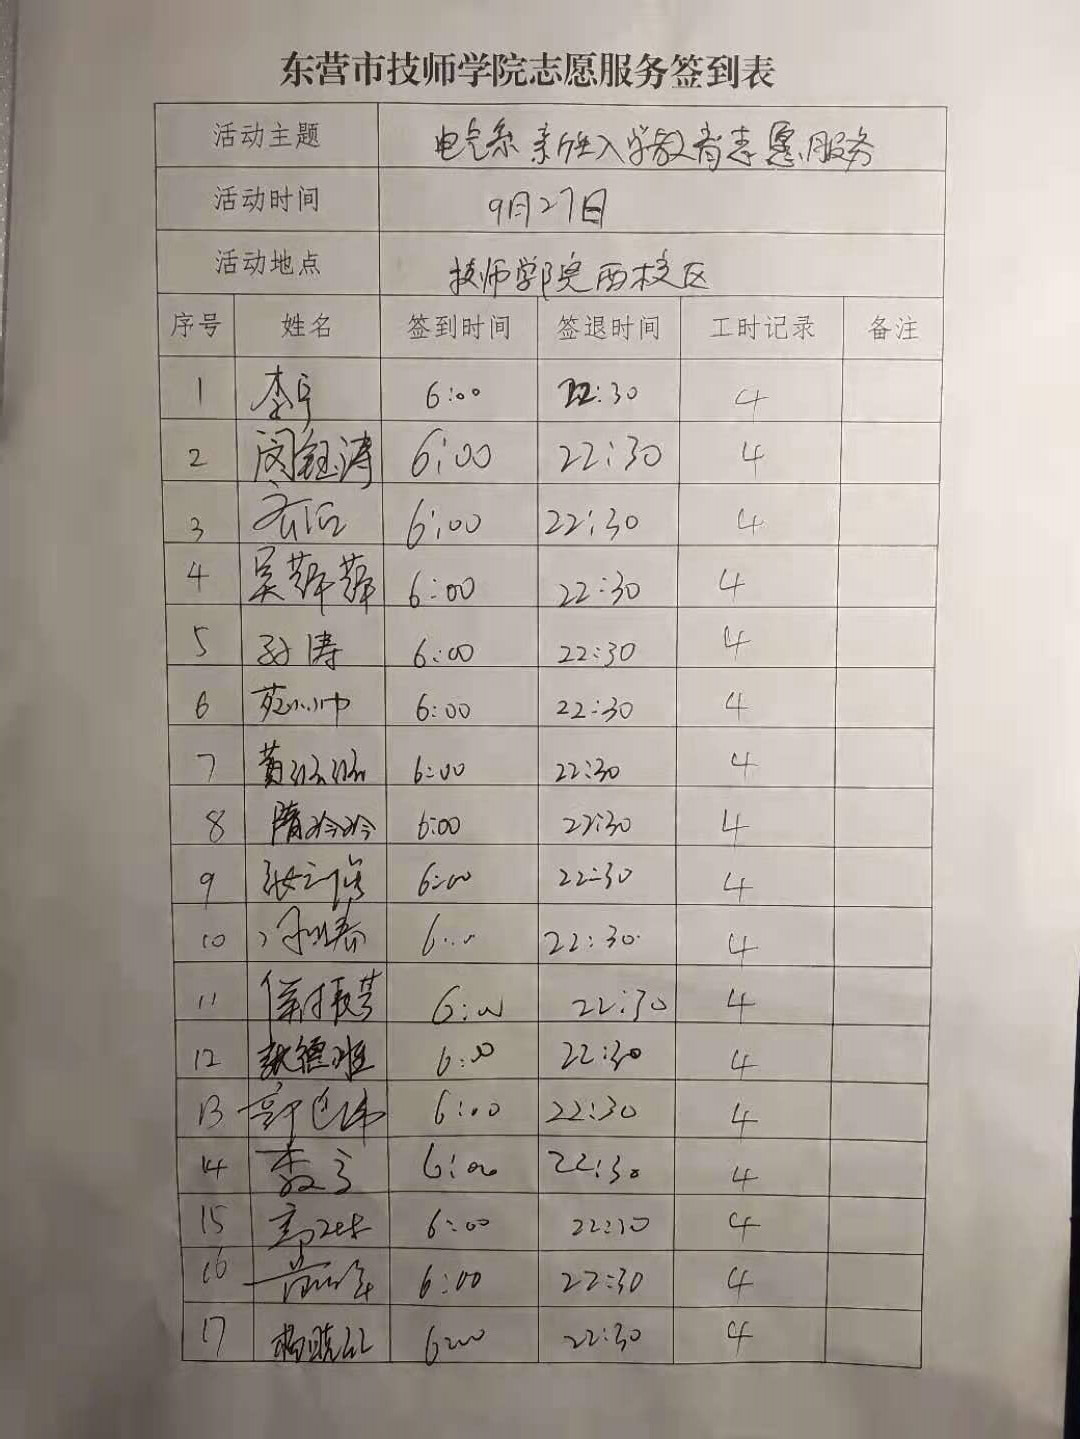 东营市技师学院志愿服务签到表
活动主题 电气系新生入学教育志愿服务
活动时间 9月27日
活动地点 技师学院西校区
序号 姓名 签到时间 签退时间 工时记录 备注
1 李宁 6:00 22:30 4
2 闵钰涛 6:00 22:30 4
3 6:00 22:30 4
4 吴萍萍 6:00 22:30 4
5 孙涛 6:00 22:30 4
6 苑小帅 6:00 22:30 4
7 黄 6:00 22:30 4
8 隋玲玲 6:00 22:30 4
9 张 6:00 22:30 4
10 6:00 22:30 4
11 6:00 22:30 4
12 6:00 22:30 4
13 6:00 22:30 4
14 6:00 22:30 4
15 高 6:00 22:30 4
16 6:00 22:30 4
17 杨晓 6:00 22:30 4